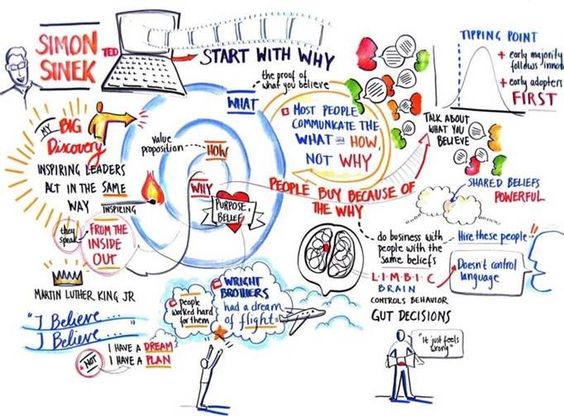 SIMON
SINEK
TED
START WITH WHY
the proof of
what you believe
WHAT
HOW
WHY
value
proposition
PURPOSE
BELIEF
MY
BIG
Discovery
INSPIRING LEADERS
ACT IN THE SAME
WAY
INSPICING
they
speak
FROM THE
INSIDE
OUT
MARTIN LUTHER KING JR
"I Believe ...
I Believe ...
NOT
I HAVE A DREAM
I HAVE A PLAN
people
worked hard
for them
WRIGHT
BROTHERS
had a dream
of flight
MOST PEOPLE
COMMUNICATE THE
WHAT HOW,
NOT WHY
PEOPLE BUY BECAUSE OF
THE WHY
TIPPING POINT
+ early majority
follows
+ early adopters
FIRST
TALK ABOUT
WHAT YOU
BELIEVE
SHARED BELIEFS
POWERFUL
do business with
people with the
same beliefs
Hire these people
LIMBIC
BRAIN
CONTROLS BEHAVIOR
Doesn't control
language
GUT DECISIONS
"it just feels
wrong"